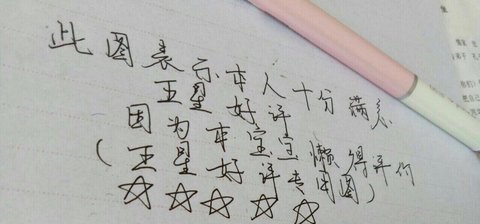 此图表示本人十分满意
五星好评
因为本宝宝懒得评价
(五星好评专用图)
☆☆☆☆☆